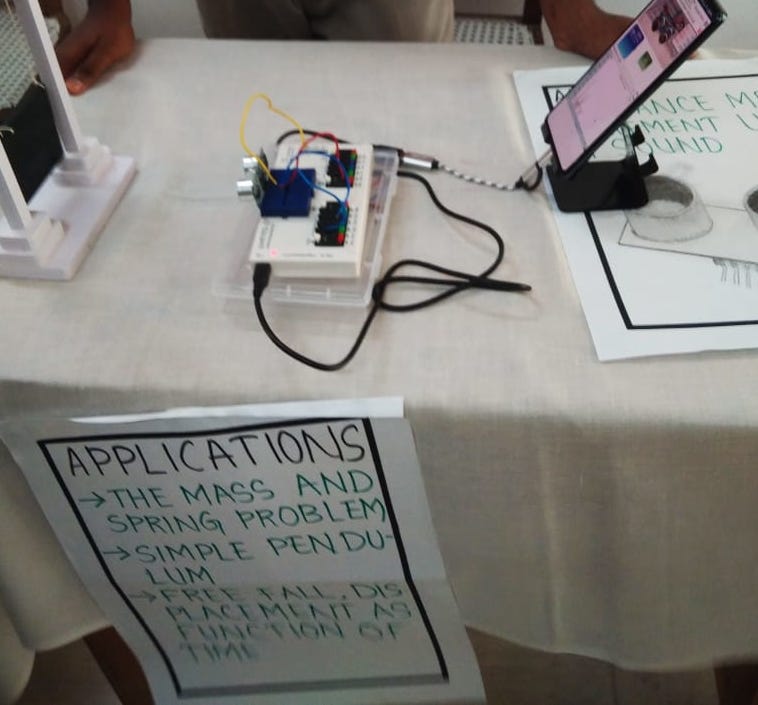 ANCE ME
MENT U
SOUND
APPLICATIONS
→THE MASS AND
SPRING PROBLEM
→SIMPLE PENDU-
LUM
→FREE FALL, DIS
PLACEMENT AS
FUNCTION OF
TIME